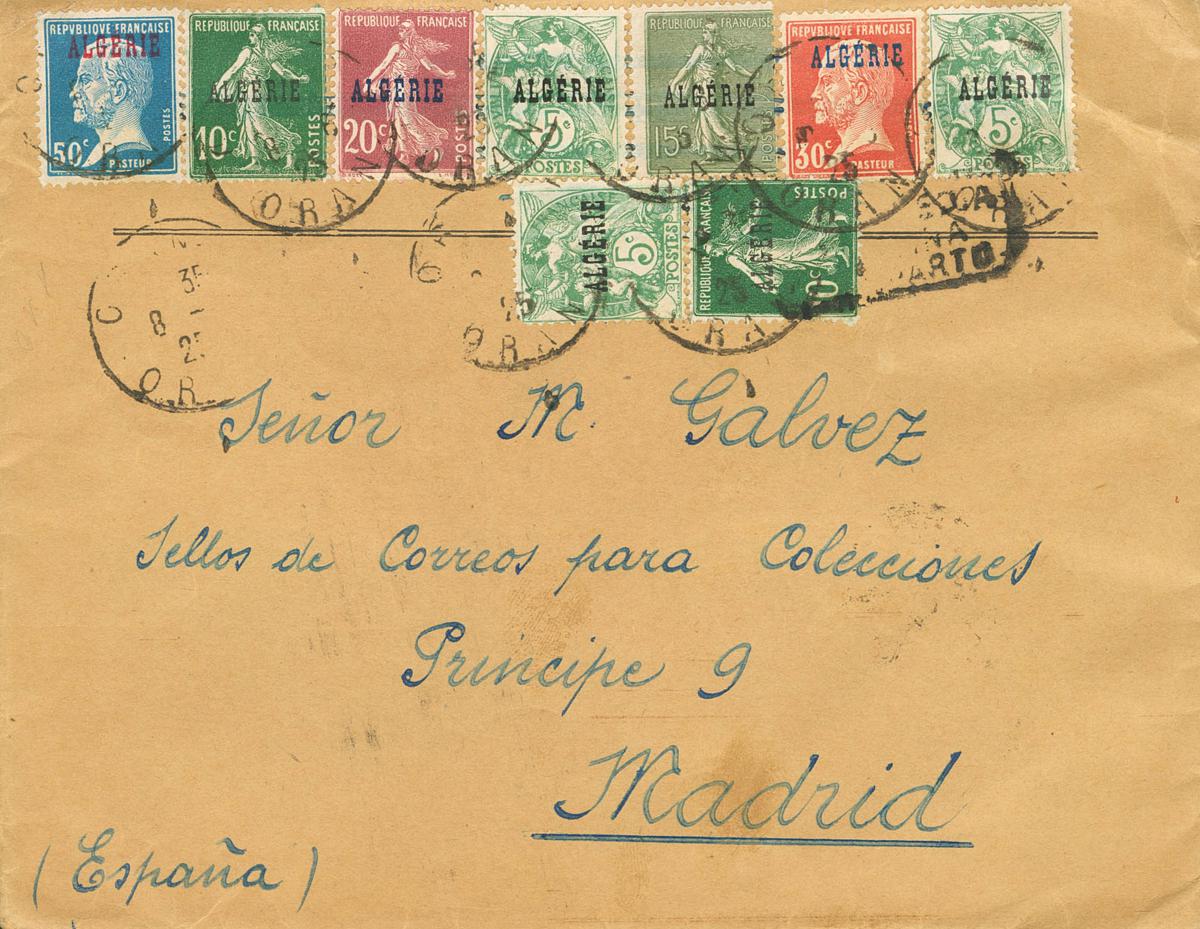 REPUBLIQUE FRANÇAISE
ALGÉRIE
50c
POSTES
PASTEUR
REPUBLIQUE FRANÇAISE
ALGÉRIE
10c
POSTES
REPUBLIQUE FRANÇAISE
ALGÉRIE
20c
POSTES
ALGÉRIE
5c
POSTES
REPUBLIQUE FRANÇAISE
ALGÉRIE
15c
POSTES
REPUBLIQUE FRANÇAISE
ALGÉRIE
30c
PASTEUR
ALGÉRIE
5c
POSTES
ORAN
ORAN
ORAN
ORAN
ALGÉRIE
5c
POSTES
REPUBLIQUE FRANÇAISE
ALGÉRIE
10c
POSTES
ORAN
Señor M. Galvez
Sellos de Correos para Colecciones
Principe 9
Madrid
(España)